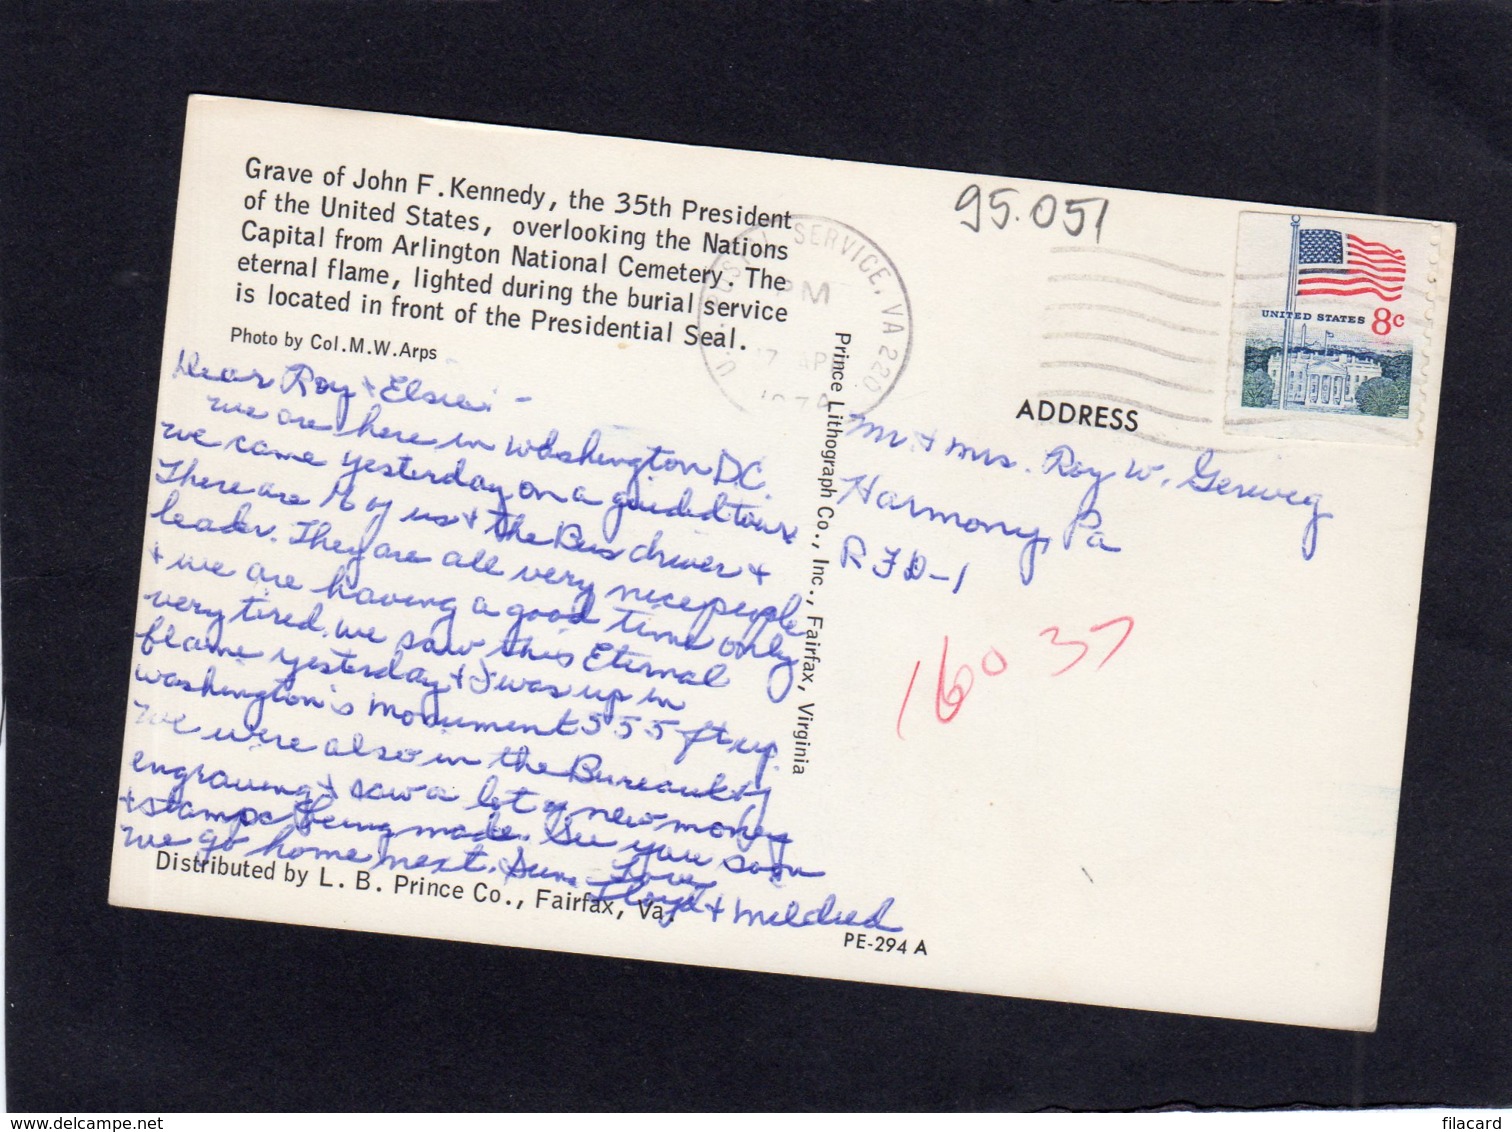 Grave of John F. Kennedy, the 35th President
of the United States, overlooking the Nations
Capital from Arlington National Cemetery. The
eternal flame, lighted during the burial service
is located in front of the Presidential Seal.
Photo by Col.M.W.Arps
Dear Roy & Elsie: -
We are here in Washington D.C.
we came yesterday on a guided tour
There are of us & the Bus driver &
leader. They are all very nice people
& we are having a good time only
very tired. we saw this Eternal
flame yesterday & I was up in
Washington's monument 555 ft up.
We were also in the Bureau of
engraving & saw a lot of new money
& stamps being made. See you soon
we go home next. Sun. Love
Floyd & Mildred
Distributed by L. B. Prince Co., Fairfax, Va.
PE-294 A
Prince Lithograph Co., Inc., Fairfax, Virginia
95.051
U.S. POSTAL SERVICE, VA 220
PM
17 AP
UNITED STATES 8c
ADDRESS
Mr. & Mrs. Roy W. Gerweg
Harmony, Pa
R F D-1
16037
filacard